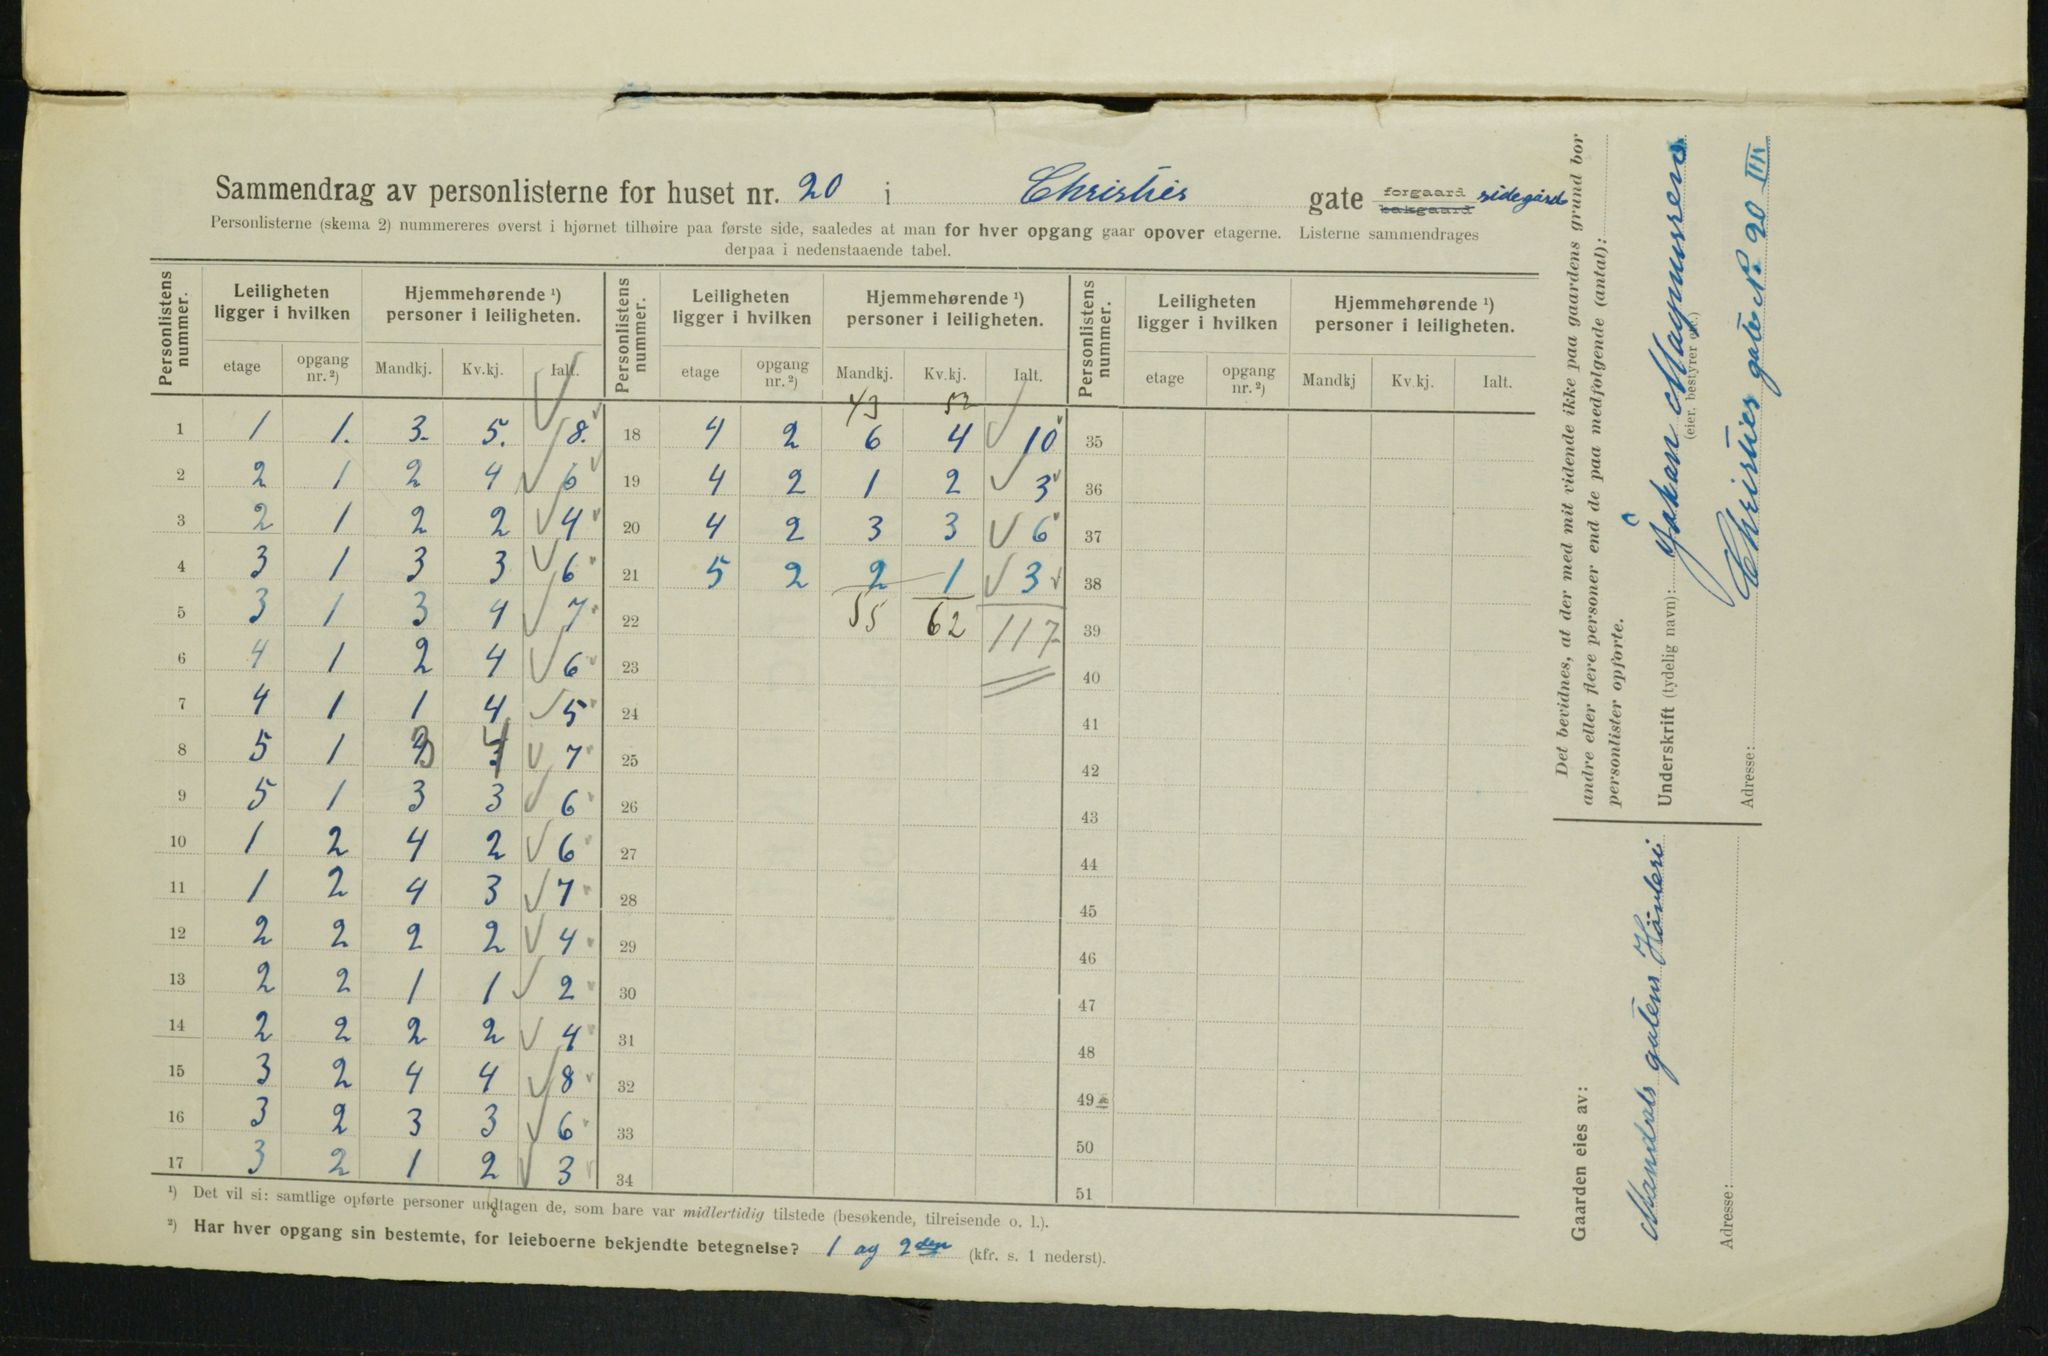 Sammendrag av personlisterne for huset nr. 20 i Christies gate forgaard bakgaard sidegård
Personlisterne (skema 2) nummereres øverst i hjørnet tilhøire paa første side, saaledes at man for hver opgang gaar opover etagerne. Listerne sammendrages
derpaa i nedenstaaende tabel.
Personlistens nummer. Leiligheten ligger i hvilken Hjemmehørende ¹) personer i leiligheten. Personlistens nummer. Leiligheten ligger i hvilken Hjemmehørende ¹) personer i leiligheten. Personlistens nummer. Leiligheten ligger i hvilken Hjemmehørende ¹) personer i leiligheten.
etage opgang nr. ²) Mandkj. Kv.kj. Ialt. etage opgang nr. ²) Mandkj. Kv.kj. Ialt. etage opgang nr. ²) Mandkj Kv.kj. Ialt.
43 52
1 1 1. 3. 5. 8. 18 4 2 6 4 10 35
2 2 1 2 4 6 19 4 2 1 2 3 36
3 2 1 2 2 4 20 4 2 3 3 6 37
4 3 1 3 3 6 21 5 2 2 1 3 38
5 3 1 3 4 7 22 55 62 117 39
6 4 1 2 4 6 23 40
7 4 1 1 4 5 24 41
8 5 1 3 4 7 25 42
9 5 1 3 3 6 26 43
10 1 2 4 2 6 27 44
11 1 2 4 3 7 28 45
12 2 2 2 2 4 29 46
13 2 2 1 1 2 30 47
14 2 2 2 2 4 31 48
15 3 2 4 4 8 32 49
16 3 2 3 3 6 33 50
17 3 2 1 2 3 34 51
¹) Det vil si: samtlige opførte personer undtagen de, som bare var midlertidig tilstede (besøkende, tilreisende o. l.).
²) Har hver opgang sin bestemte, for leieboerne bekjendte betegnelse? 1 og 2den (kfr. s. 1 nederst).
Det bevidnes, at der med mit vidende ikke paa gaardens grund bor
andre eller flere personer end de paa medfølgende (antal):
personlister opførte.
Underskrift (tydelig navn): Håkan Magnussen
(eier, bestyrer etc.)
Adresse: Christies gate No 20 III
Gaarden eies av:
Mandals gatens
Adresse: